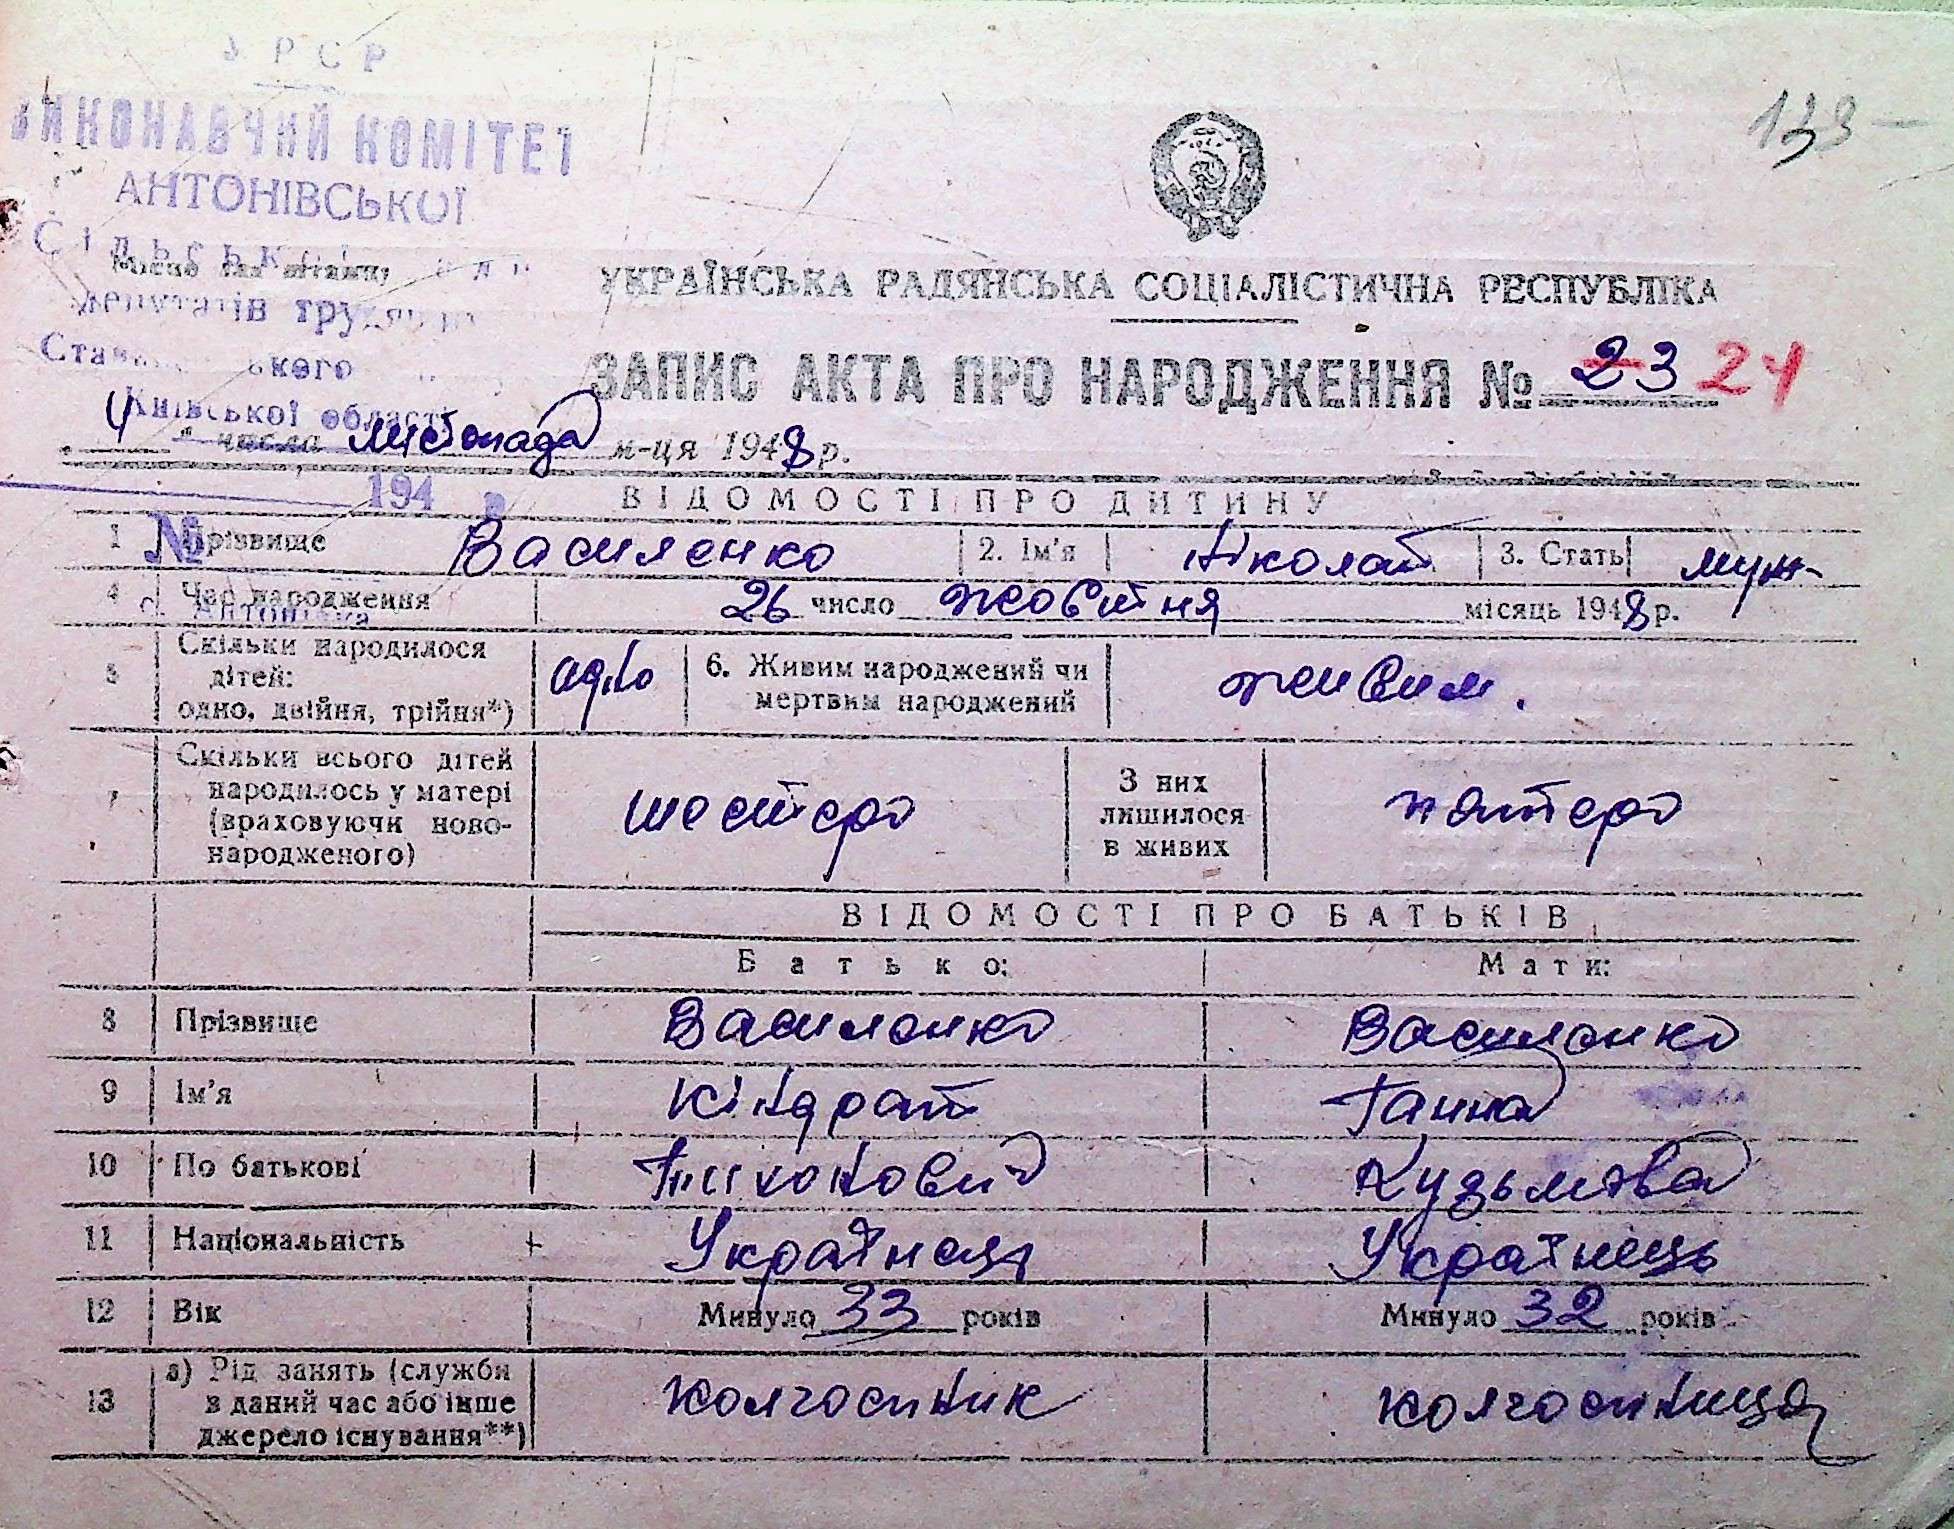 УРСР
ВИКОНАВЧИЙ КОМІТЕТ
АНТОНІВСЬКОЇ
Сільської
Місце для штампу
депутатів трудящих
Київської області
194 р
№
с. Антонівка
133
УКРАЇНСЬКА РАДЯНСЬКА СОЦІАЛІСТИЧНА РЕСПУБЛІКА
ЗАПИС АКТА ПРО НАРОДЖЕННЯ № 23 24
"4" числа листопада м-ця 1948 р.
ВІДОМОСТІ ПРО ДИТИНУ
1 Прізвище Василенко 2. Ім'я Ніколай 3. Стать муж-
4 Час народження 26 число жовтня місяць 1948 р.
5 Скільки народилося дітей: одно, двійня, трійня*) одно 6. Живим народжений чи мертвим народжений живим.
7 Скільки всього дітей народилось у матері (враховуючи ново-народженого) шестеро З них лишилося в живих пятеро
ВІДОМОСТІ ПРО БАТЬКІВ
Батько: Мати:
8 Прізвище Василенко Василенко
9 Ім'я Кіндрат Ганна
10 По батькові Тихонович Кузьмова
11 Національність Українець Українець
12 Вік Минуло 33 років Минуло 32 років
13 а) Рід занять (служби в даний час або інше джерело існування**) колгоспник колгоспниця